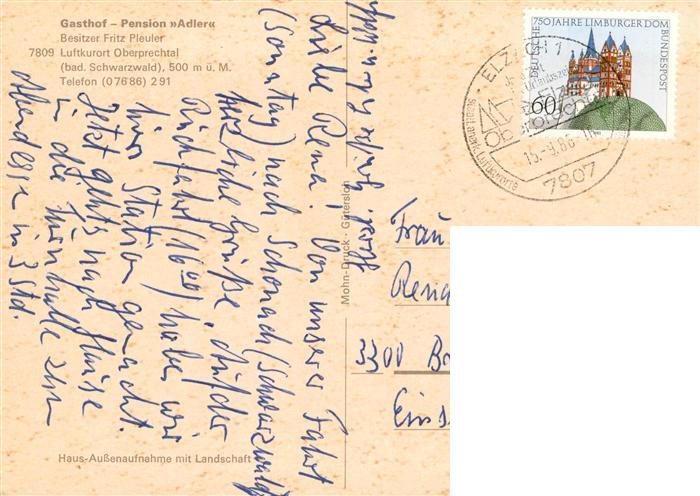 Gasthof – Pension »Adler«
Besitzer Fritz Pleuler
7809 Luftkurort Oberprechtal
(bad. Schwarzwald), 500 m ü. M.
Telefon (07686) 291
Liebe Rena! Von unserer Fahrt
(Sonntag) nach Schonach (Schwarzwald)
herzliche Grüße. Auf der
Rückfahrt (16⁰⁰) haben wir
hier Station gemacht.
Jetzt geht's nach Hause
in die
in 3 Std.
Mohn-Druck · Gütersloh
Haus-Außenaufnahme mit Landschaft
750 JAHRE LIMBURGER DOM
DEUTSCHE BUNDESPOST
60
ELZACH 1
Oberprechtal
15.-9.86
7807
Frau
Rena
3300 Br
Eins